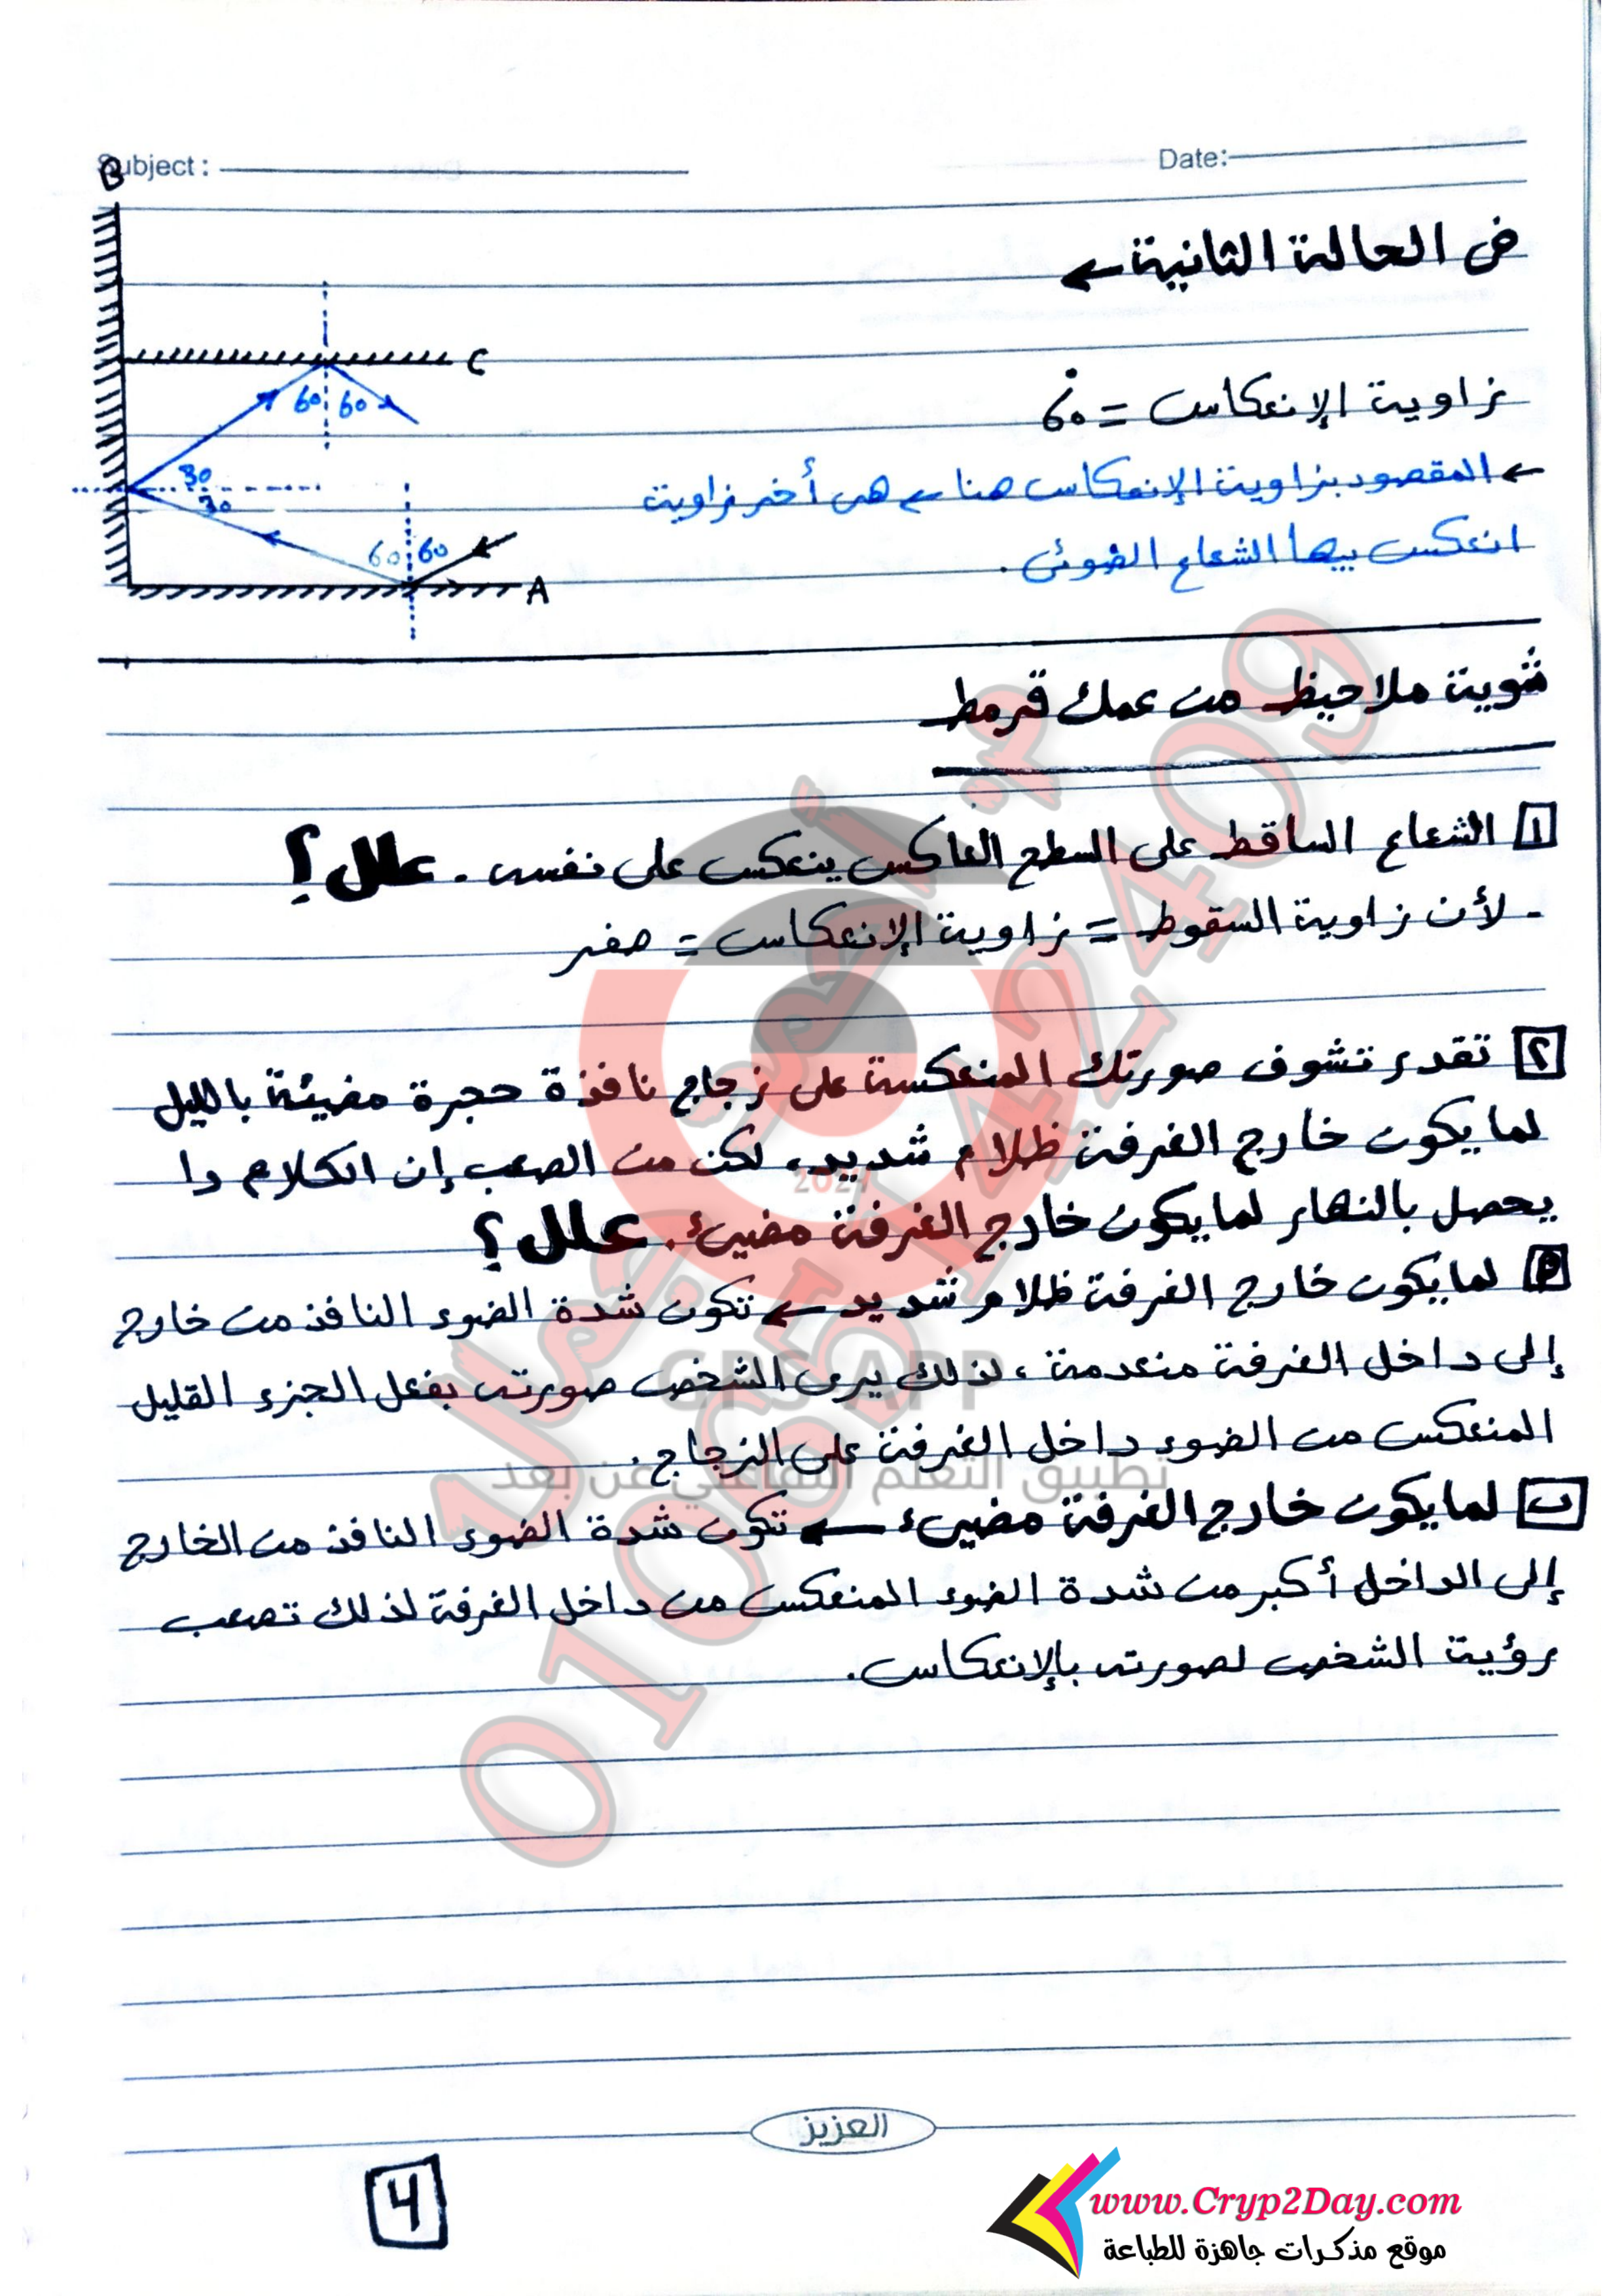 Subject :
Date:
B
في الحالة الثانية ←
C
60 60
زاوية الإنعكاس = 60°
30
30
← المقصود بزاوية الإنعكاس هنا ← هي أخر زاوية
60 60
انعكس بيها الشعاع الضوئى .
A
شوية ملاحيظ من عمك قرمط
١ الشعاع الساقط على السطح العاكس ينعكس على نفسه . علل ؟
- لأن زاوية السقوط = زاوية الإنعكاس = صفر
٢ تقدر تشوف صورتك المنعكسة على زجاج نافذة حجرة مضيئة بالليل
لما يكون خارج الغرفة ظلام شديد، لكن من الصعب إن الكلام دا
يحصل بالنهار لما يكون خارج الغرفة مضيئ. علل ؟
لما يكون خارج الغرفة ظلام شديد ← تكون شدة الضوء النافذ من خارج
إلى داخل الغرفة منعدمة ، لذلك يرى الشخص صورته بفعل الجزء القليل
المنعكس من الضوء داخل الغرفة على الزجاج .
ب لما يكون خارج الغرفة مضيئ ← تكون شدة الضوء النافذ من الخارج
إلى الداخل أكبر من شدة الضوء المنعكس من داخل الغرفة لذلك تصعب
رؤية الشخص لصورته بالإنعكاس.
2024
GPS APP
تطبيق التعلم التفاعلي عن بعد
العزيز
4
www.Cryp2Day.com
موقع مذكرات جاهزة للطباعة